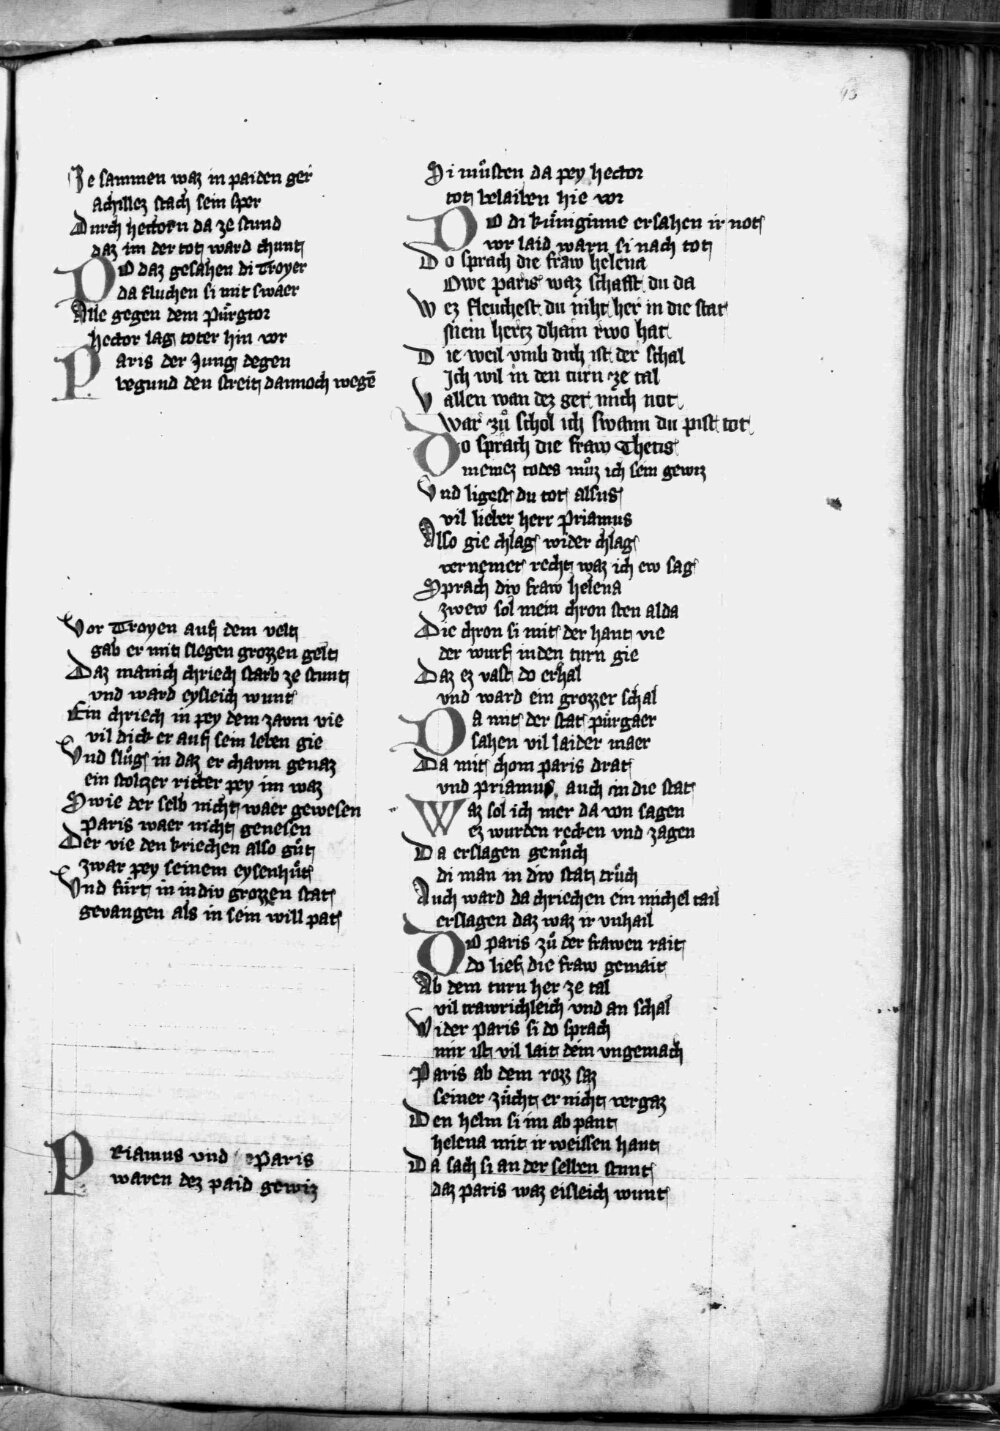 93
Ze sammen waz in paiden ger
achillez stach sein sper
Durch hectorn da ze stund
daz im der tot ward chunt
Do daz gesahen di Troyer
da fluchen si mit swaer
Alle gegen dem Pürgtor
hector lag toter hin vor
Paris der Jung degen
begund den streit dannoch wegē
Vor Troyen auf dem velt
gab er mit slegen grozzen gelt
Daz manich chriech starb ze stunt
vnd ward eysleich wunt
Ein chriech in pey dem zavm vie
vil dick er auf sein leben gie
Vnd slůg in daz er chavm genaz
ein stoltzer ritter pey im waz
Swie der selb nicht waer gewesen
Paris waer nicht genesen
Der vie den kriechen also gůt
zwar pey seinem eysenhůt
Vnd fůrt in in div grozzen stat
gevangen als in sein will pat
Priamus vnd Paris
waren dez paid gewiz
Si můsten da pey hector
tot belaiben hie vor
Do di küniginne ersahen ir not
vor laid warn si nach tot
Do sprach die fraw helena
Owe paris waz schafft du da
Wez fleuchest du niht her in die stat
mein hertz dhain rwo hat
Die weil vmb dich ist der schal
Ich wil in den turn ze tal
Vallen wan dez get mich not
War zů schol ich swann du pist tot
Do sprach die fraw Thetis
meinez todes můz ich sein gewiz
Vnd ligest du tot alsus
vil lieber herr Priamus
Also gie chlag wider chlag
vernemet recht waz ich ew sag
Sprach div fraw helena
zwew sol mein chron sten alda
Die chron si mit der hant vie
der wurf in den turn gie
Daz ez vast do erhal
vnd ward ein grozzer schal
Da mit der stat pürgaer
sahen vil laider maer
Da mit chom paris drat
vnd Priamus auch in die stat
Waz sol ich mer da von sagen
ez wurden recken vnd zagen
Da erslagen genůch
di man in div stat trůch
Auch ward da chriechen ein michel tail
erslagen daz waz ir vnhail
Do paris zů der frawen rait
do lief die fraw gemait
Ab dem turn her ze tal
vil trawrichleich vnd an schal
Wider Paris si do sprach
mir ist vil lait dein vngemach
Paris ab dem rozz saz
seiner zücht er nicht vergaz
Den helm si im ab pant
helena mit ir weissen hant
Da sach si an der selben stunt
daz paris waz eisleich wunt